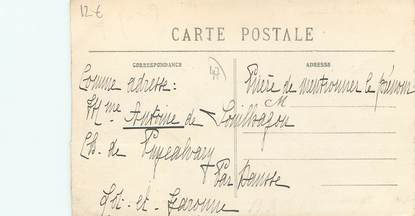 12 €
CARTE POSTALE
CORRESPONDANCE
ADRESSE
47
Comme adresse:
Prière de mentionner le prénom
Mme Antoine de
M
Ch. de
Par Damme
Lot-et-Garonne